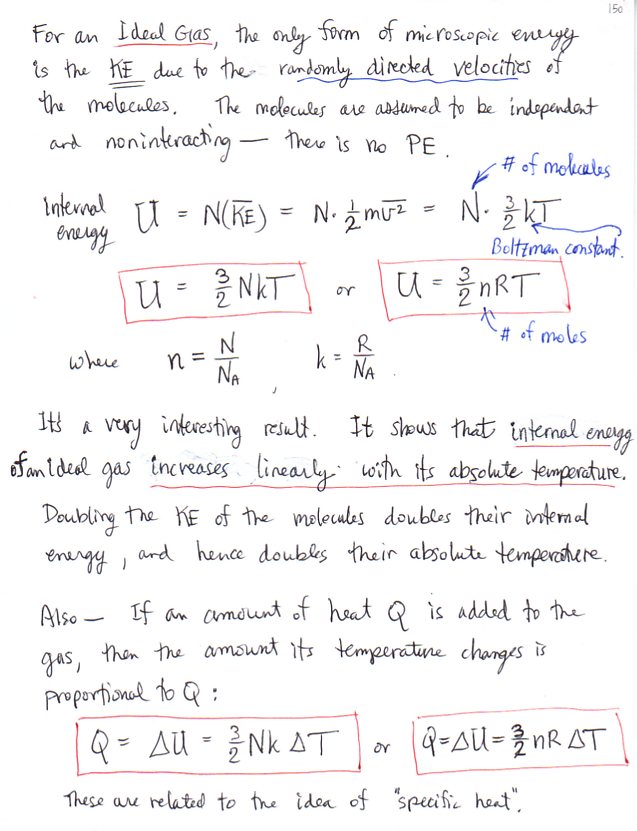 150
For an Ideal Gas, the only form of microscopic energy
is the KE due to the randomly directed velocities of
the molecules. The molecules are assumed to be independent
and noninteracting — there is no PE.
# of molecules
Internal energy U = N(K̅E̅) = N · 1/2 m v̅² = N · 3/2 kT
Boltzman constant.
U = 3/2 NkT or U = 3/2 nRT
# of moles
where n = N/N_A , k = R/N_A .
It's a very interesting result. It shows that internal energy
of an ideal gas increases linearly with its absolute temperature.
Doubling the KE of the molecules doubles their internal
energy, and hence doubles their absolute temperature.
Also — If an amount of heat Q is added to the
gas, then the amount its temperature changes is
proportional to Q :
Q = ΔU = 3/2 Nk ΔT or Q = ΔU = 3/2 nR ΔT
These are related to the idea of "specific heat".